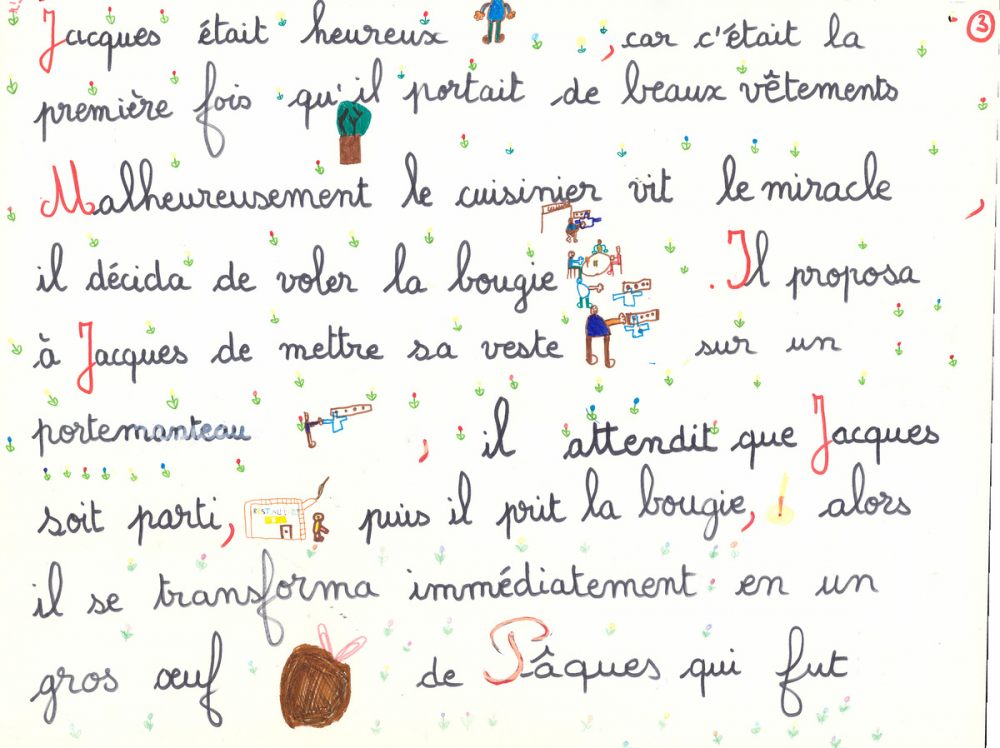 3
Jacques était heureux , car c'était la
première fois qu'il portait de beaux vêtements
Malheureusement le cuisinier vit le miracle ,
il décida de voler la bougie . Il proposa
à Jacques de mettre sa veste sur un
portemanteau , il attendit que Jacques
soit parti, puis il prit la bougie, alors
il se transforma immédiatement en un
gros œuf de Pâques qui fut